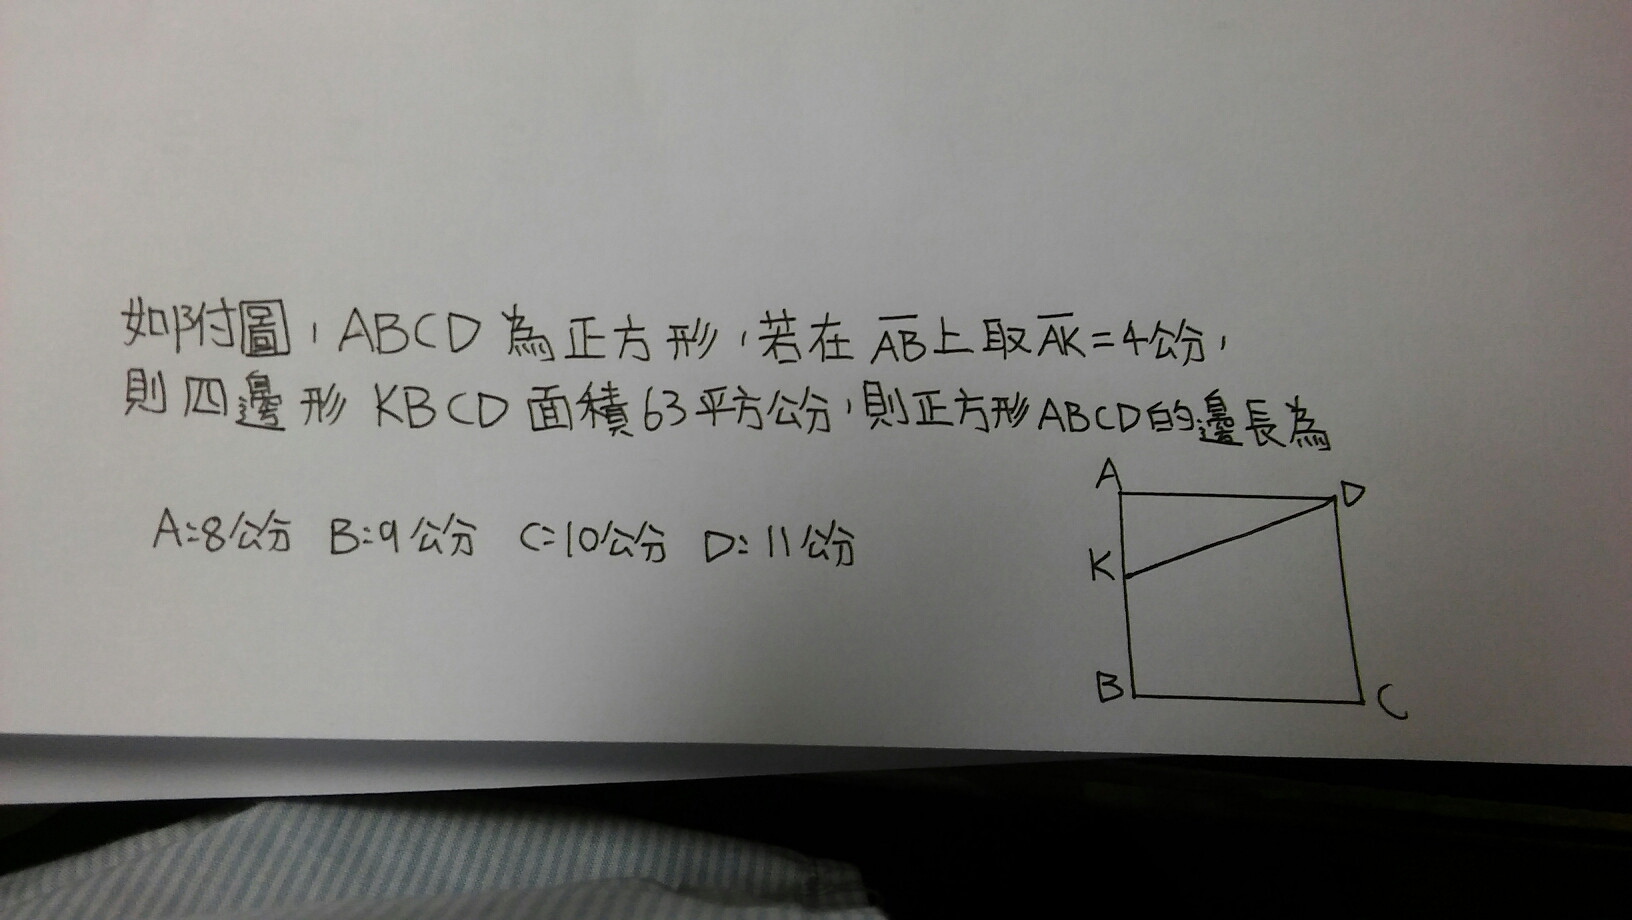 如附圖，ABCD為正方形，若在AB上取AK=4公分，
則四邊形KBCD面積63平方公分，則正方形ABCD的邊長為
A:8公分 B:9公分 C:10公分 D:11公分
A
D
K
B
C